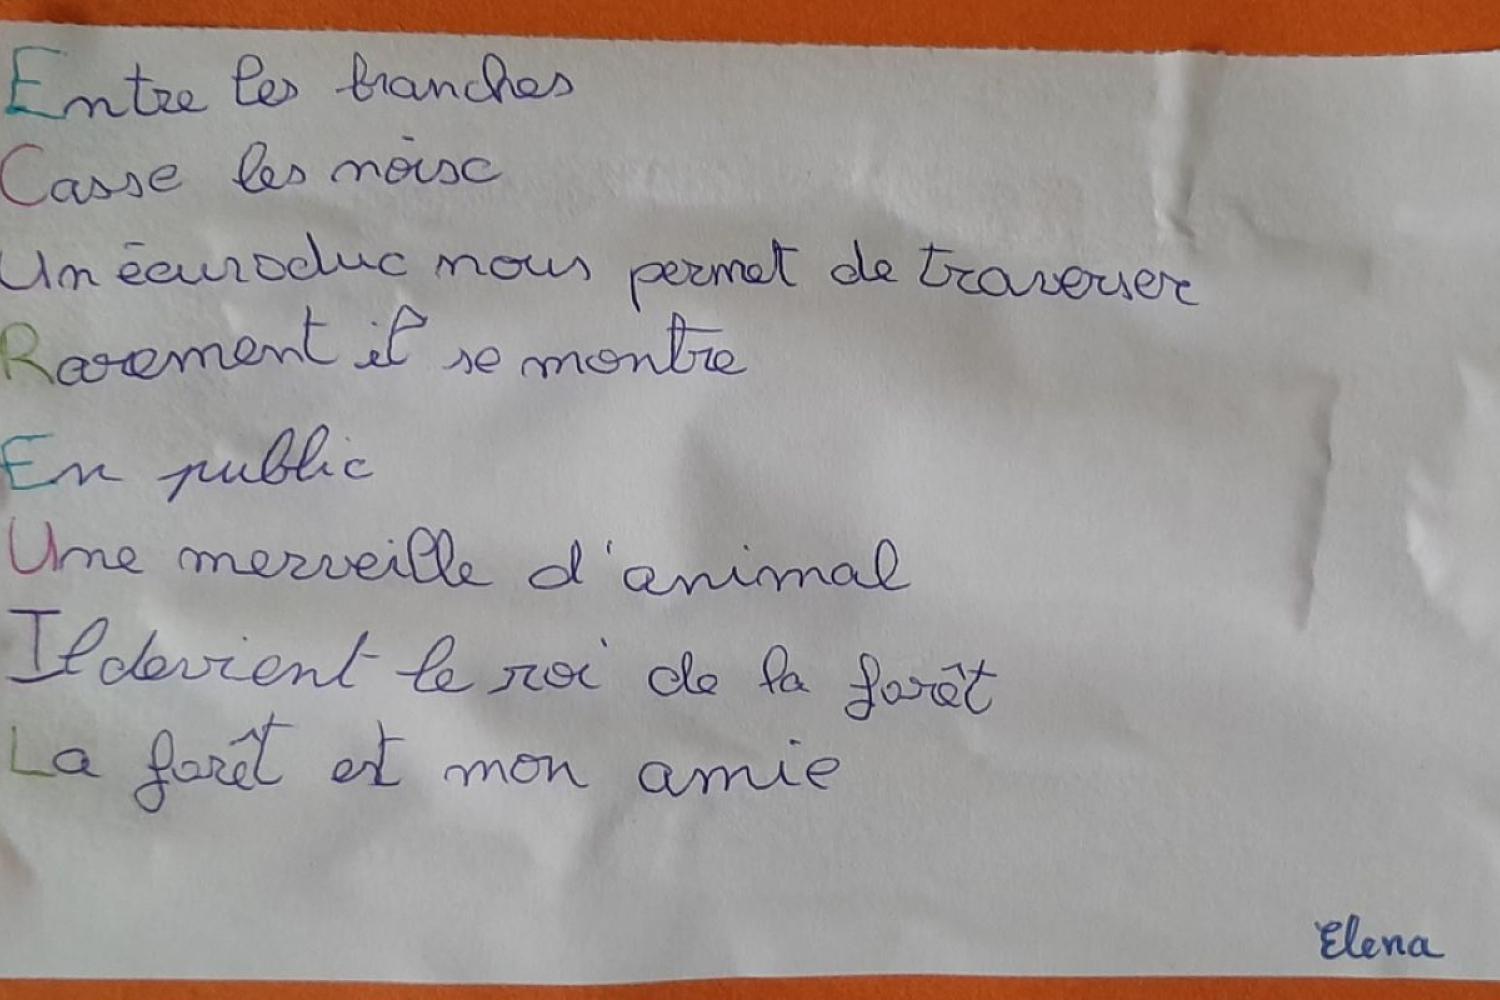 Entre les branches
Casse les noisc
Un écuroduc nous permet de traverser
Rarement il se montre
En public
Une merveille d'animal
Il devient le roi de la forêt
La forêt est mon amie
Elena